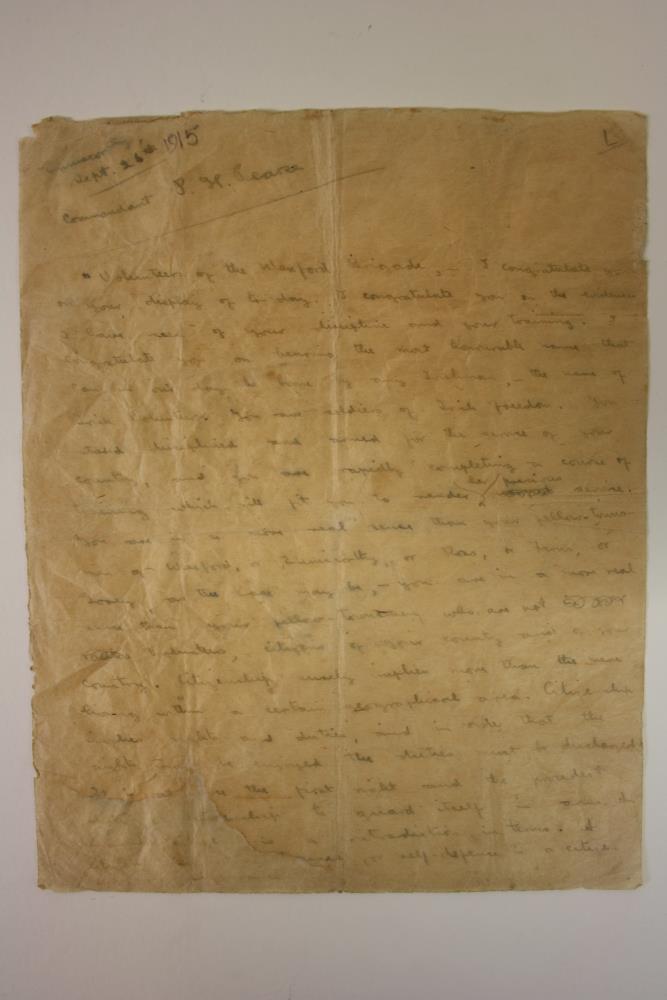 Enniscorthy
Sept. 26th 1915
L
Commandant P. H. Pearse
"Volunteers of the Wexford Brigade, – I congratulate you
on your display of to-day. I congratulate you on the evidence
I have seen of your discipline and your training. I
congratulate you on bearing the most honourable name that
can in our day be borne by any Irishman, – the name of
Irish Volunteer. You are soldiers of Irish freedom. You
stand disciplined and armed for the service of your
country, and you are rapidly completing a course of
training which will fit you to render her precious service.
You are in a more real sense than your fellow-towns-
men of Wexford, or Enniscorthy, or Ross, or Ferns, or
Gorey, as the case may be, – you are in a more real
sense than your fellow-countrymen who are not
Volunteers, citizens of your county and of your
country. Citizenship surely implies more than the mere
living within a certain geographical area. Citizenship
implies rights and duties, and in order that the
rights may be enjoyed the duties must be discharged.
It is the first right and the proudest
citizenship to guard itself in arms. A
is a contradiction in terms. A
for self-defence is a citizen